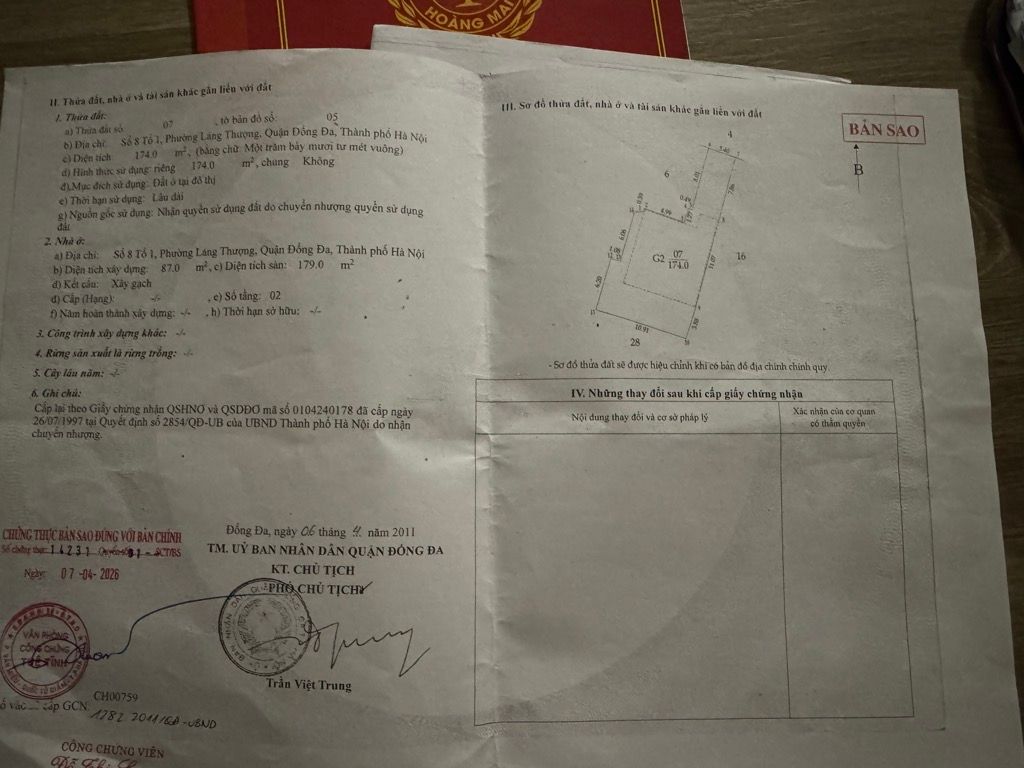 HOÀNG MAI
II. Thửa đất, nhà ở và tài sản khác gắn liền với đất
1. Thửa đất:
a) Thửa đất số 07 , tờ bản đồ số: 05
b) Địa chỉ: Số 8 Tổ 1, Phường Láng Thượng, Quận Đống Đa, Thành phố Hà Nội
c) Diện tích 174.0 m², (bằng chữ: Một trăm bảy mươi tư mét vuông)
d) Hình thức sử dụng: riêng 174.0 m², chung Không
đ) Mục đích sử dụng: Đất ở tại đô thị
e) Thời hạn sử dụng: Lâu dài
g) Nguồn gốc sử dụng: Nhận quyền sử dụng đất do chuyển nhượng quyền sử dụng
đất
2. Nhà ở:
a) Địa chỉ: Số 8 Tổ 1, Phường Láng Thượng, Quận Đống Đa, Thành phố Hà Nội
b) Diện tích xây dựng: 87.0 m², c) Diện tích sàn: 179.0 m²
d) Kết cấu: Xây gạch
đ) Cấp (Hạng): -/- , e) Số tầng: 02
f) Năm hoàn thành xây dựng: -/- , h) Thời hạn sở hữu: -/-
3. Công trình xây dựng khác: -/-
4. Rừng sản xuất là rừng trồng: -/-
5. Cây lâu năm: -/-
6. Ghi chú:
Cấp lại theo Giấy chứng nhận QSHNƠ và QSDĐƠ mã số 0104240178 đã cấp ngày
26/07/1997 tại Quyết định số 2854/QĐ-UB của UBND Thành phố Hà Nội do nhận
chuyển nhượng.
Đống Đa, ngày 06 tháng 4 năm 2011
TM. UỶ BAN NHÂN DÂN QUẬN ĐỐNG ĐA
KT. CHỦ TỊCH
PHÓ CHỦ TỊCH
Trần Việt Trung
CHỨNG THỰC BẢN SAO ĐÚNG VỚI BẢN CHÍNH
Số chứng thực: 14231 Quyển số: 01 - SCT/BS
Ngày: 07-04-2026
VĂN PHÒNG
CÔNG CHỨNG
CH00759
cấp GCN:
CÔNG CHỨNG VIÊN
III. Sơ đồ thửa đất, nhà ở và tài sản khác gắn liền với đất
BẢN SAO
B
4
6
16
28
G2 07
174.0
10.91
11.07
7.86
6.06
6.20
4.99
- Sơ đồ thửa đất sẽ được hiệu chỉnh khi có bản đồ địa chính chính quy.
IV. Những thay đổi sau khi cấp giấy chứng nhận
Nội dung thay đổi và cơ sở pháp lý
Xác nhận của cơ quan
có thẩm quyền